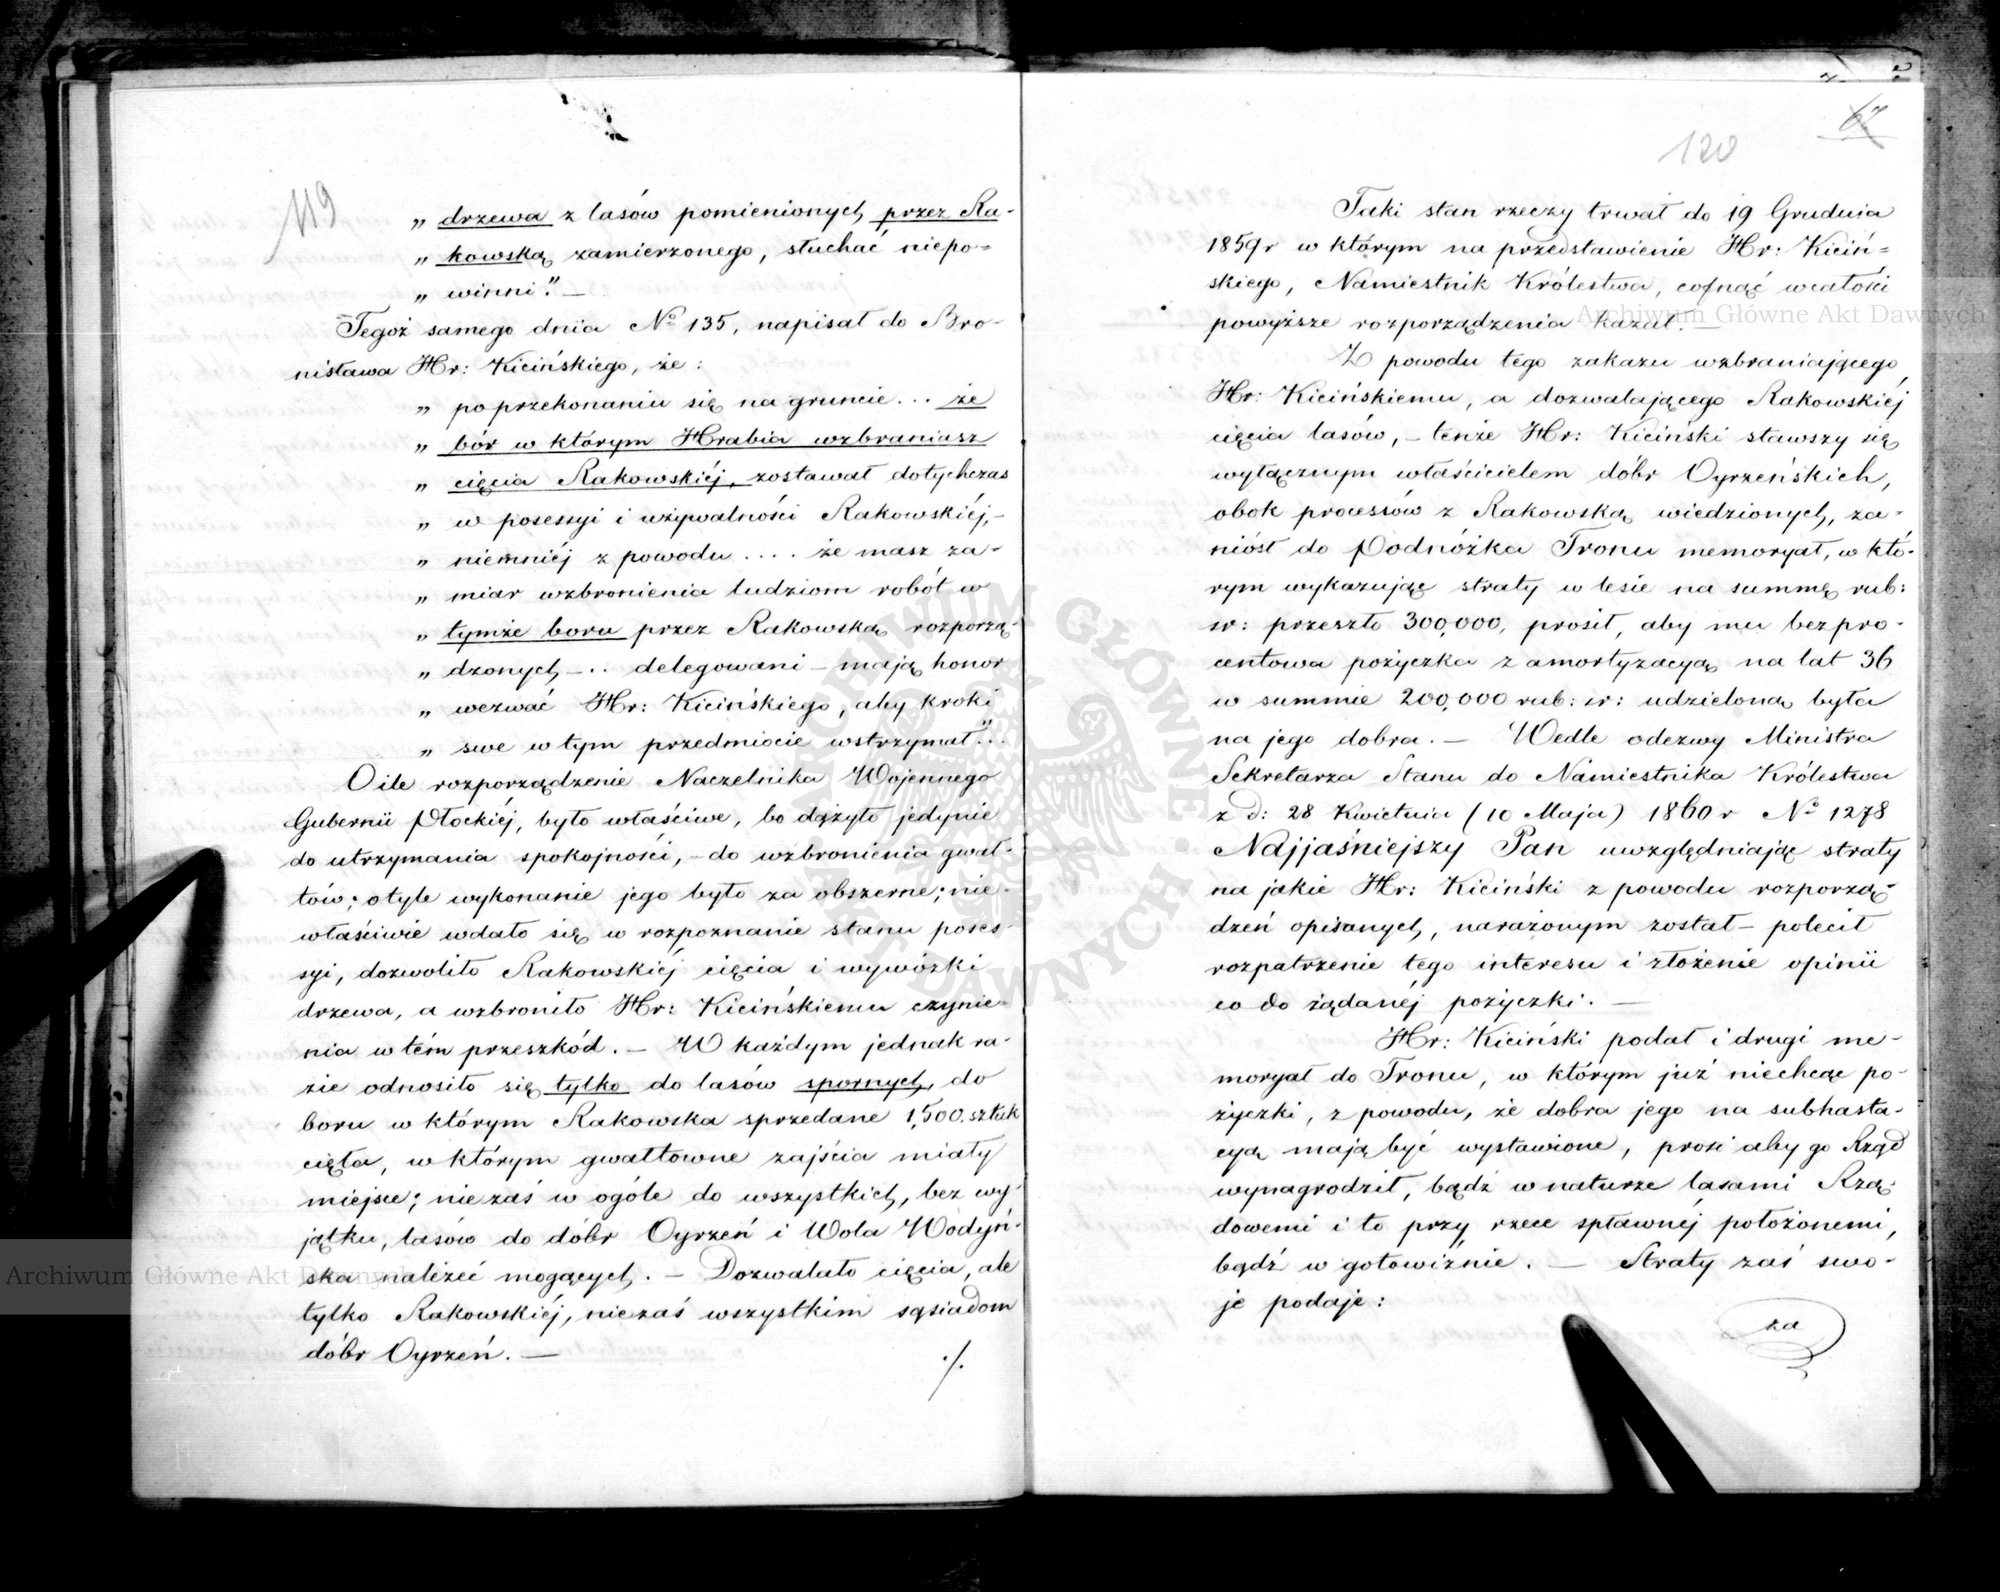 119
„ drzewa z lasów pomienionych, przez Ra-
„ kowską zamierzonego, słuchać niepo=
„ winni." —
Tegoż samego dnia No 135, napisał do Bro-
nisława Hr: Kicińskiego, że:
„ po przekonaniu się na gruncie... że
„ bór w którym Hrabia wzbraniasz
„ cięcia Rakowskiéj, zostawał dotychczas
„ w posessyi i używalności Rakowskiéj,-
„ niemniej z powodu .... że masz za-
„ miar wzbronienia ludziom robót w
„ tymże boru przez Rakowską rozporzą-
„ dzonych, — .. delegowani — mają honor
„ wezwać Hr: Kicińskiego, aby kroki
„ swe w tym przedmiocie wstrzymał"...
O ile rozporządzenie Naczelnika Wojennego
Gubernii Płockiéj, było właściwe, bo dążyło jedynie
do utrzymania spokojności, — do wzbronienia gwał-
tów; o tyle wykonanie jego było za obszerne; nie-
właściwie wdało się w rozpoznanie stanu poses-
syi, dozwoliło Rakowskiéj cięcia i wywózki
drzewa, a wzbroniło Hr: Kicińskiemu czynie-
nia w tém przeszkód. — W każdym jednak ra-
zie odnosiło się tylko do lasów spornych, do
boru w którym Rakowska sprzedane 1,500. sztuk
cięła, w którym gwałtowne zajścia miały
miejsce; nie zaś w ogóle do wszystkich, bez wy-
jątku, lasów do dóbr Oyrzeń i Wola Wodyń-
ska należéć mogących. — Dozwalało cięcia, ale
tylko Rakowskiéj, nie zaś wszystkim sąsiadom
dóbr Oyrzeń. —
./.
67
120
Taki stan rzeczy trwał do 19 Grudnia
1859 r w którym na przedstawienie Hr: Kiciń=
skiego, Namiestnik Królestwa, cofnąć w całości
powyższe rozporządzenia kazał. —
Z powodu tego zakazu wzbraniającego
Hr: Kicińskiemu, a dozwalającego Rakowskiéj
cięcia lasów, — tenże Hr: Kiciński stawszy się
wyłącznym właścicielem dóbr Oyrzeńskich,
obok processów z Rakowską wiedzionych, za-
niósł do Podnóżka Tronu memoryał, w któ-
rym wykazując straty w lesie na summę rub:
sr: przeszło 300,000, prosił, aby mu bezpro-
centowa pożyczka z amortyzacyą na lat 36
w summie 200,000 rub: sr: udzieloną była
na jego dobra. — Wedle odezwy Ministra
Sekretarza Stanu do Namiestnika Królestwa
z d: 28 Kwietnia (10 Maja) 1860 r No 1278
Najjaśniejszy Pan uwzględniając straty
na jakie Hr: Kiciński z powodu rozporzą-
dzeń opisanych, narażonym został — polecił
rozpatrzenie tego interesu i złożenie opinii
co do żądanéj pożyczki. —
Hr: Kiciński podał i drugi me-
moryał do Tronu, w którym już niechcąc po-
życzki, z powodu, że dobra jego na subhasta-
cyą mają być wystawione, prosi aby go Rząd
wynagrodził, bądź w naturze lasami Rzą-
dowemi i to przy rzece spławnéj położonemi,
bądź w gotowiźnie. — Straty zaś swo-
je podaje:
za
Archiwum Główne Akt Dawnych
Archiwum Główne Akt Dawnych
ARCHIWUM GŁÓWNE AKT DAWNYCH